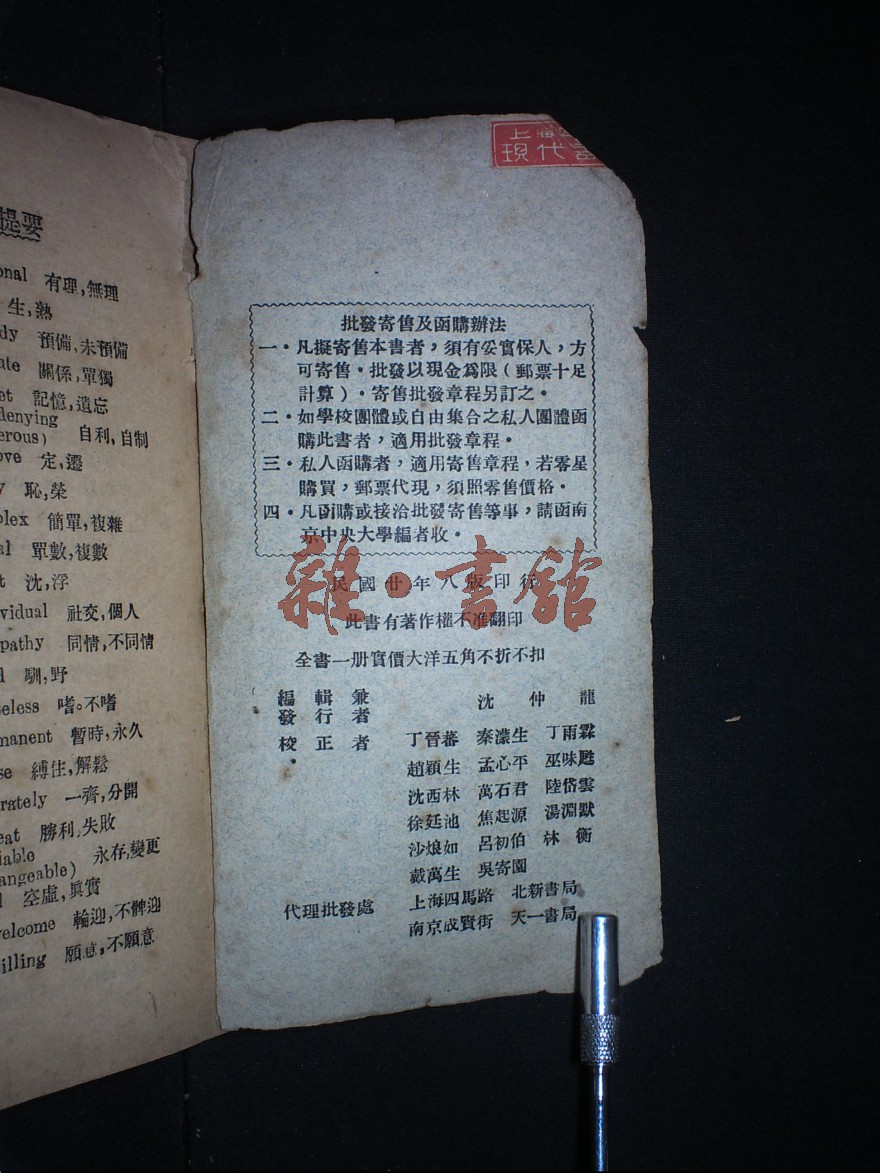 提要
onal 有理,無理
生,熟
dy 預備,未預備
ate 關係,單獨
et 記憶,遺忘
denying
erous) 自利,自制
ove 定,遷
y 恥,榮
plex 簡單,複雜
al 單數,複數
t 沈,浮
vidual 社交,個人
pathy 同情,不同情
d 馴,野
eless 嗜。不嗜
manent 暫時,永久
se 縛住,解鬆
rately 一齊,分開
eat 勝利,失敗
iable
angeable) 永存,變更
l 空虛,眞實
elcome 輪迎,不髀迎
illing 願意,不願意
上海
現代書
批發寄售及函購辦法
一·凡擬寄售本書者，須有妥實保人，方
可寄售·批發以現金爲限（郵票十足
計算）·寄售批發章程另訂之·
二·如學校團體或自由集合之私人團體函
購此書者，適用批發章程·
三·私人函購者，適用寄售章程，若零星
購買，郵票代現，須照零售價格·
四·凡函購或接洽批發寄售等事，請函南
京中央大學編者收·
雜·書館
民國廿年八版印行
此書有著作權不准翻印
全書一册實價大洋五角不折不扣
編輯兼
發行者 沈仲龍
校正者 丁晉蕃 秦濃生 丁雨霖
趙穎生 孟心平 巫味甦
沈西林 萬石君 陸岱雲
徐廷池 焦起源 湯淵默
沙烺如 呂初伯 林衡
戴萬生 吳寄園
代理批發處 上海四馬路 北新書局
南京成賢街 天一書局